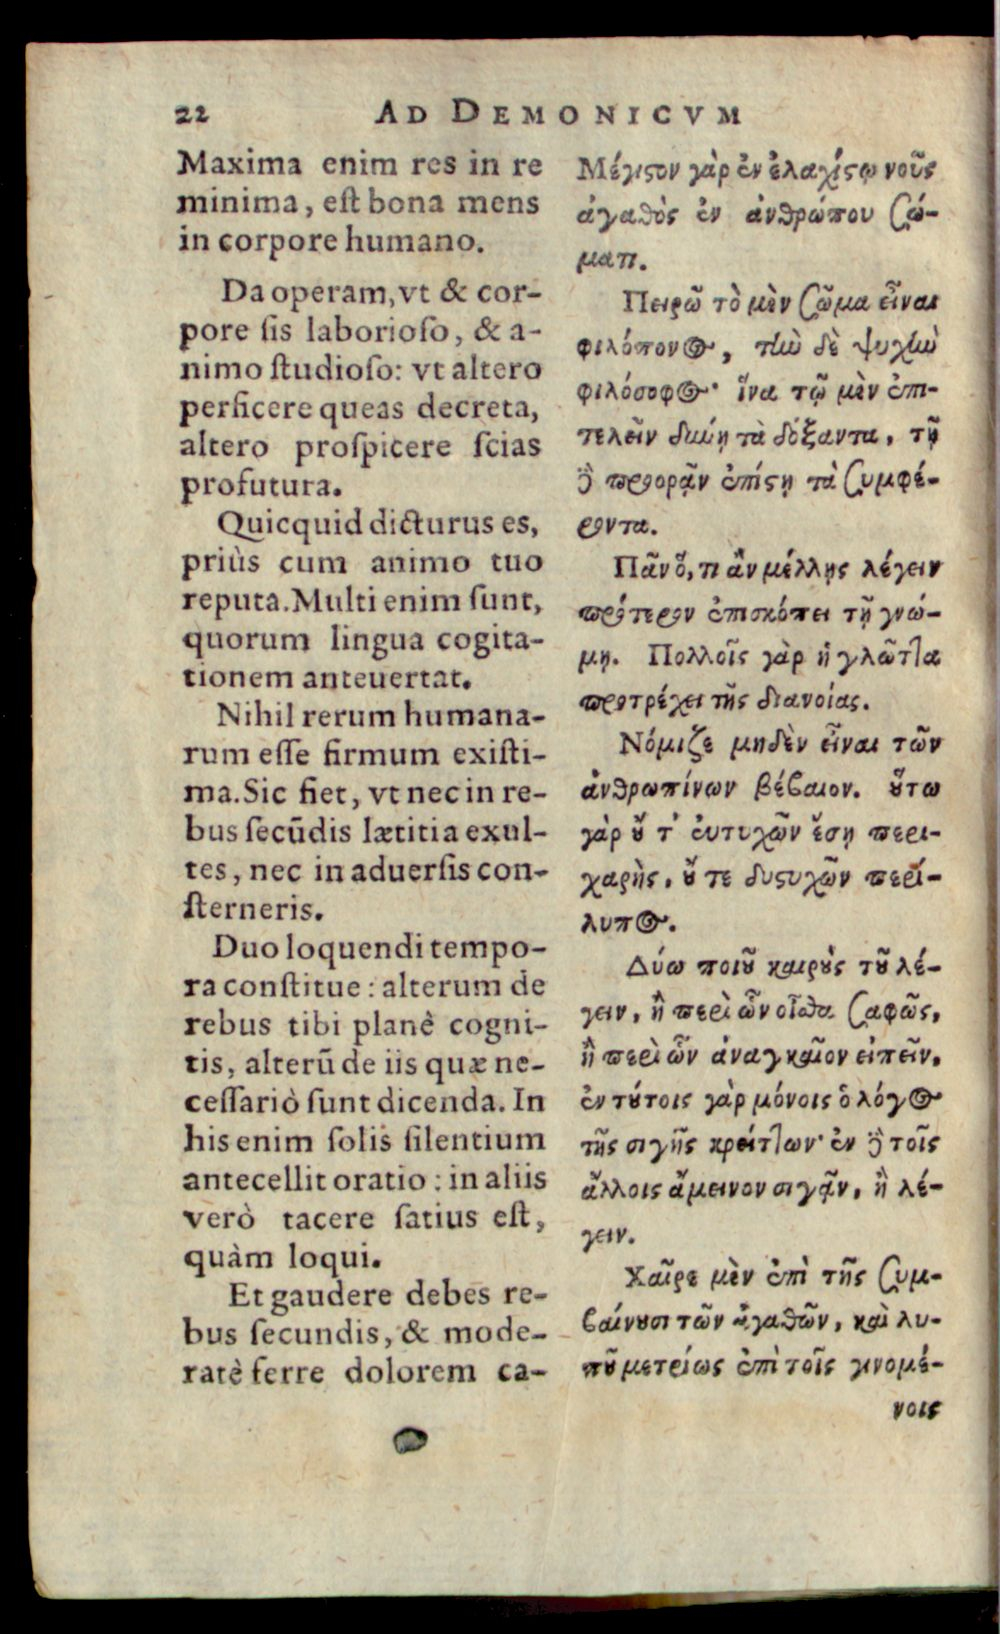 22 AD DEMONICVM
Maxima enim res in re
minima, est bona mens
in corpore humano.
Da operam, vt & cor-
pore sis laborioso, & a-
nimo studioso: vt altero
perficere queas decreta,
altero prospicere scias
profutura.
Quicquid dicturus es,
priùs cum animo tuo
reputa. Multi enim sunt,
quorum lingua cogita-
tionem anteuertat.
Nihil rerum humana-
rum esse firmum existi-
ma. Sic fiet, vt nec in re-
bus secūdis lætitia exul-
tes, nec in aduersis con-
sterneris.
Duo loquendi tempo-
ra constitue: alterum de
rebus tibi planè cogni-
tis, alterū de iis quæ ne-
cessariò sunt dicenda. In
his enim solis silentium
antecellit oratio: in aliis
verò tacere satius est,
quàm loqui.
Et gaudere debes re-
bus secundis, & mode-
ratè ferre dolorem ca-
Μέγιςον γὰρ ἐν ἐλαχίςῳ νοῦς
ἀγαθὸς ἐν ἀνθρώπου σώ-
ματι.
Πειρῶ τὸ μὲν σῶμα εἶναι
φιλόπονος, τὴν δὲ ψυχὴν
φιλόσοφος· ἵνα τῷ μὲν ἐπι-
τελεῖν δύνῃ τὰ δόξαντα, τῇ
δὲ προορᾷν ἐπίςῃ τὰ συμφέ-
ροντα.
Πᾶν ὅ, τι ἂν μέλλῃς λέγειν
πρότερον ἐπισκόπει τῇ γνώ-
μῃ. Πολλοῖς γὰρ ἡ γλῶττα
προτρέχει τῆς διανοίας.
Νόμιζε μηδὲν εἶναι τῶν
ἀνθρωπίνων βέβαιον. οὕτω
γὰρ οὔ τ' εὐτυχῶν ἔσῃ περι-
χαρὴς, οὔ τε δυςυχῶν περί-
λυπος.
Δύω ποιοῦ καιροὺς τοῦ λέ-
γειν, ἢ περὶ ὧν οἶσθα σαφῶς,
ἢ περὶ ὧν ἀναγκαῖον εἰπεῖν.
ἐν τούτοις γὰρ μόνοις ὁ λόγος
τῆς σιγῆς κρείττων· ἐν δὲ τοῖς
ἄλλοις ἄμεινον σιγᾷν, ἢ λέ-
γειν.
Χαῖρε μὲν ἐπὶ τῆς συμ-
βαίνουσι τῶν ἀγαθῶν, καὶ λυ-
ποῦ μετρίως ἐπὶ τοῖς γινομέ-
νοις